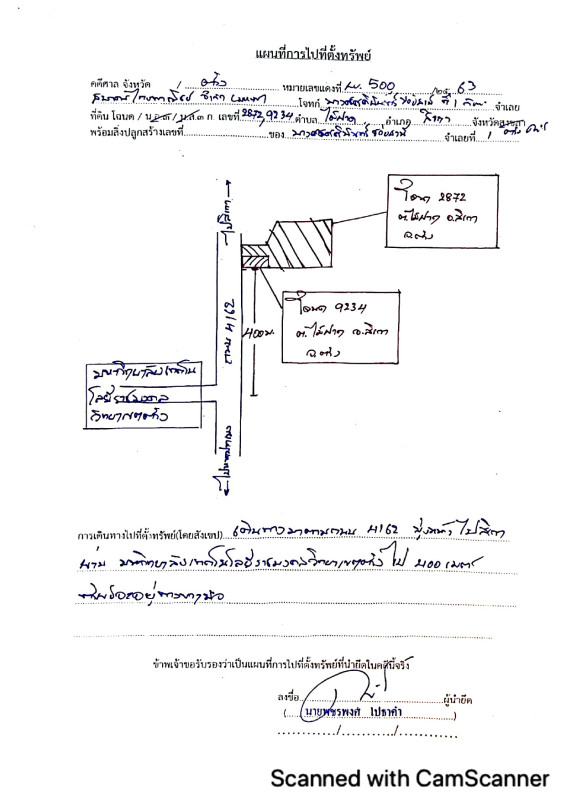 แผนที่การไปที่ตั้งทรัพย์
คดีศาล จังหวัด ตรัง หมายเลขแดงที่ ผบ. 500 /25 63
ธนาคารไทยพาณิชย์ จำกัด มหาชน โจทก์ ที่ 1 จำเลย
ที่ดิน โฉนด / น.ส.๓ / น.ส.๓ ก. เลขที่ 2872,9234 ตำบล ไม้ฝาด อำเภอ สิเกา จังหวัด ตรัง
พร้อมสิ่งปลูกสร้างเลขที่ ของ จำเลยที่ 1
ไปสิเกา
โฉนด 2872
ต.ไม้ฝาด อ.สิเกา
จ.ตรัง
โฉนด 9234
ต.ไม้ฝาด อ.สิเกา
จ.ตรัง
ถนน 4162
400ม.
มหาวิทยาลัยเทคโน
โลยีราชมงคล
วิทยาเขตตรัง
การเดินทางไปที่ตั้งทรัพย์(โดยสังเขป) เดินทางมาตามถนน 4162 มุ่งหน้าไปสิเกา
ผ่าน มหาวิทยาลัยเทคโนโลยีราชมงคลวิทยาเขตตรัง ไป 400 เมตร
ทรัพย์จะอยู่ทางขวามือ
ข้าพเจ้าขอรับรองว่าเป็นแผนที่การไปที่ตั้งทรัพย์ที่นำยึดในคดีนี้จริง
ลงชื่อ ผู้นำยึด
( นายพชรพงศ์ ไปธาคำ )
/ /
Scanned with CamScanner